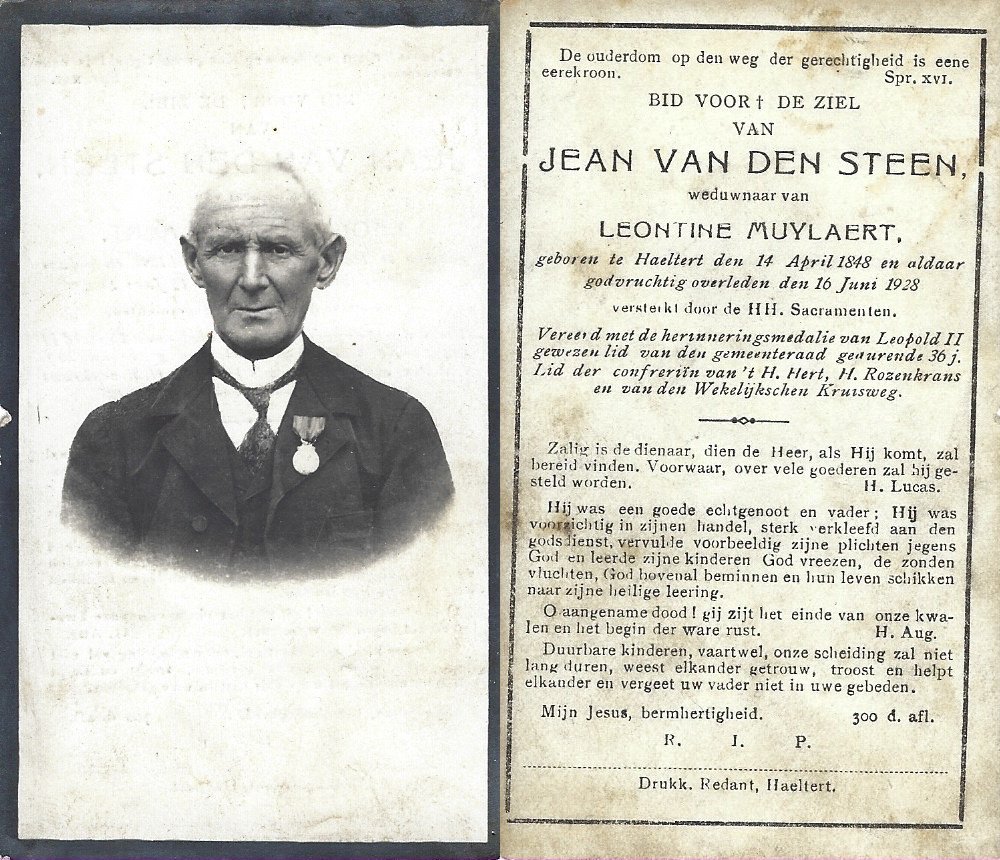 De ouderdom op den weg der gerechtigheid is eene
eerekroon. Spr. XVI.
BID VOOR † DE ZIEL
VAN
JEAN VAN DEN STEEN,
weduwnaar van
LEONTINE MUYLAERT,
geboren te Haeltert den 14 April 1848 en aldaar
godvruchtig overleden den 16 Juni 1928
versterkt door de HH. Sacramenten.
Vereerd met de herinneringsmedalie van Leopold II
gewezen lid van den gemeenteraad gedurende 36 j.
Lid der confreriïn van 't H. Hert, H. Rozenkrans
en van den Wekelijkschen Kruisweg.
Zalig is de dienaar, dien de Heer, als Hij komt, zal
bereid vinden. Voorwaar, over vele goederen zal hij ge-
steld worden. H. Lucas.
Hij was een goede echtgenoot en vader; Hij was
voorzichtig in zijnen handel, sterk verkleefd aan den
godsdienst, vervulde voorbeeldig zijne plichten jegens
God en leerde zijne kinderen God vreezen, de zonden
vluchten, God bovenal beminnen en hun leven schikken
naar zijne heilige leering.
O aangename dood! gij zijt het einde van onze kwa-
len en het begin der ware rust. H. Aug.
Duurbare kinderen, vaartwel, onze scheiding zal niet
lang duren, weest elkander getrouw, troost en helpt
elkander en vergeet uw vader niet in uwe gebeden.
Mijn Jesus, bermhertigheid. 300 d. afl.
R. I. P.
Drukk. Redant, Haeltert.